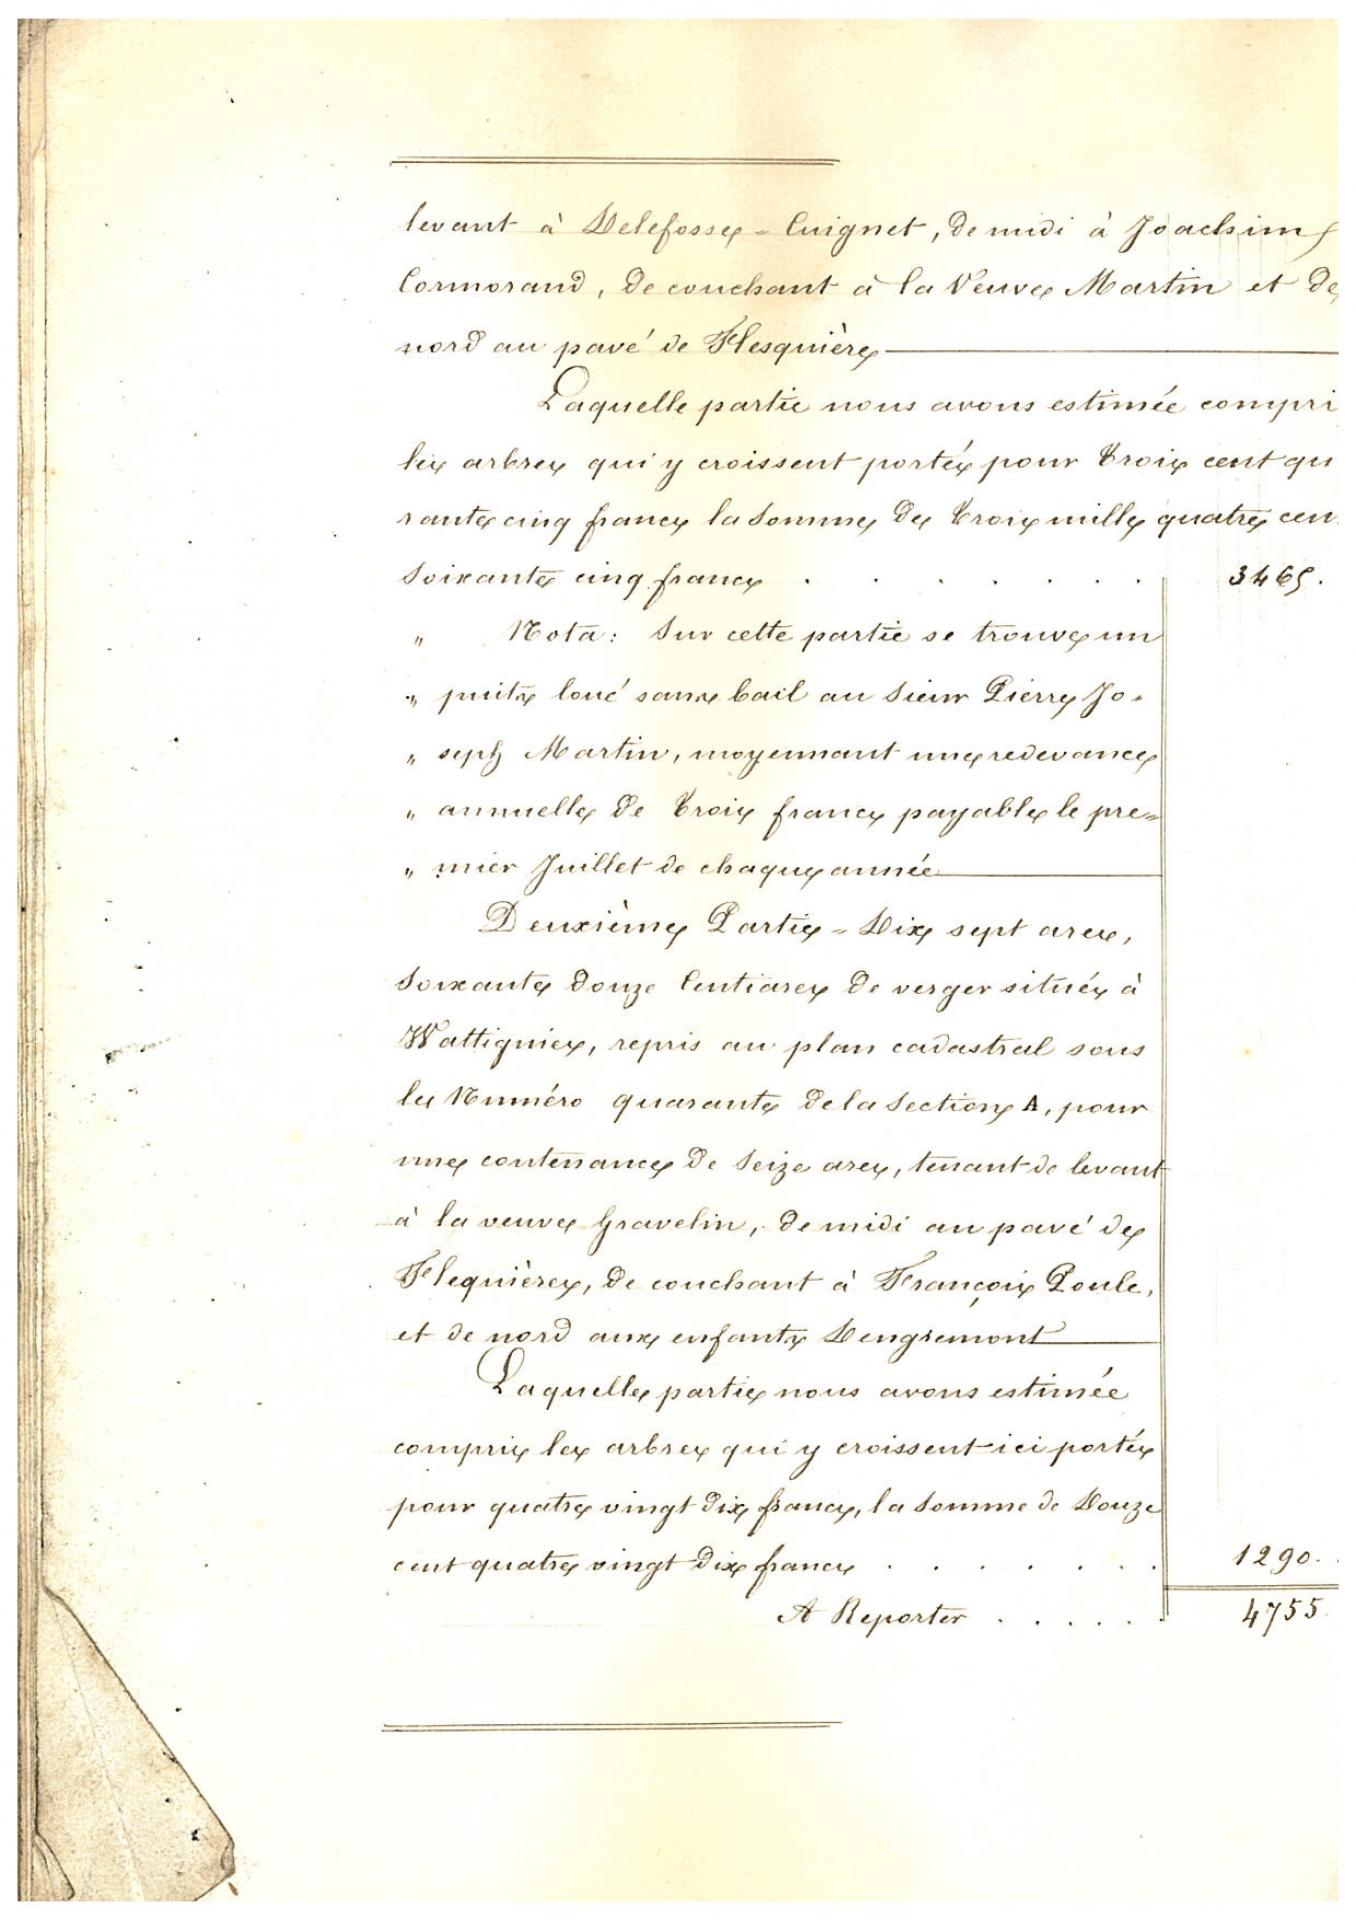 levant à Delefosse = Cuignet, de midi à Joachim
Cormorand, de couchant à la Veuve Martin et de
nord au pavé de Flesquière
Laquelle partie nous avons estimée compri
les arbres qui y croissent portés pour trois cent qu
rante cinq francs la somme de trois mille quatre cen
soixante cinq francs . . . . . . . 3465.
" Nota : Sur cette partie se trouve un
" puits loué sans bail au Sieur Pierre Jo-
" seph Martin, moyennant une redevance
" annuelle de trois francs payable le pre=
" mier Juillet de chaque année
Deuxième Partie = Dix sept ares,
soixante douze Centiares de verger située à
Wattignies, repris au plan cadastral sous
le Numéro quarante de la Section A, pour
une contenance de seize ares, tenant de levant
à la veuve Gravelin, de midi au pavé de
Flequières, de couchant à François Poule,
et de nord aux enfants Dengremont
Laquelle partie nous avons estimée
compris les arbres qui y croissent ici portés
pour quatre vingt dix francs, la somme de Douze
cent quatre vingt dix francs . . . . . . . 1290.
A Reporter . . . . . 4755.